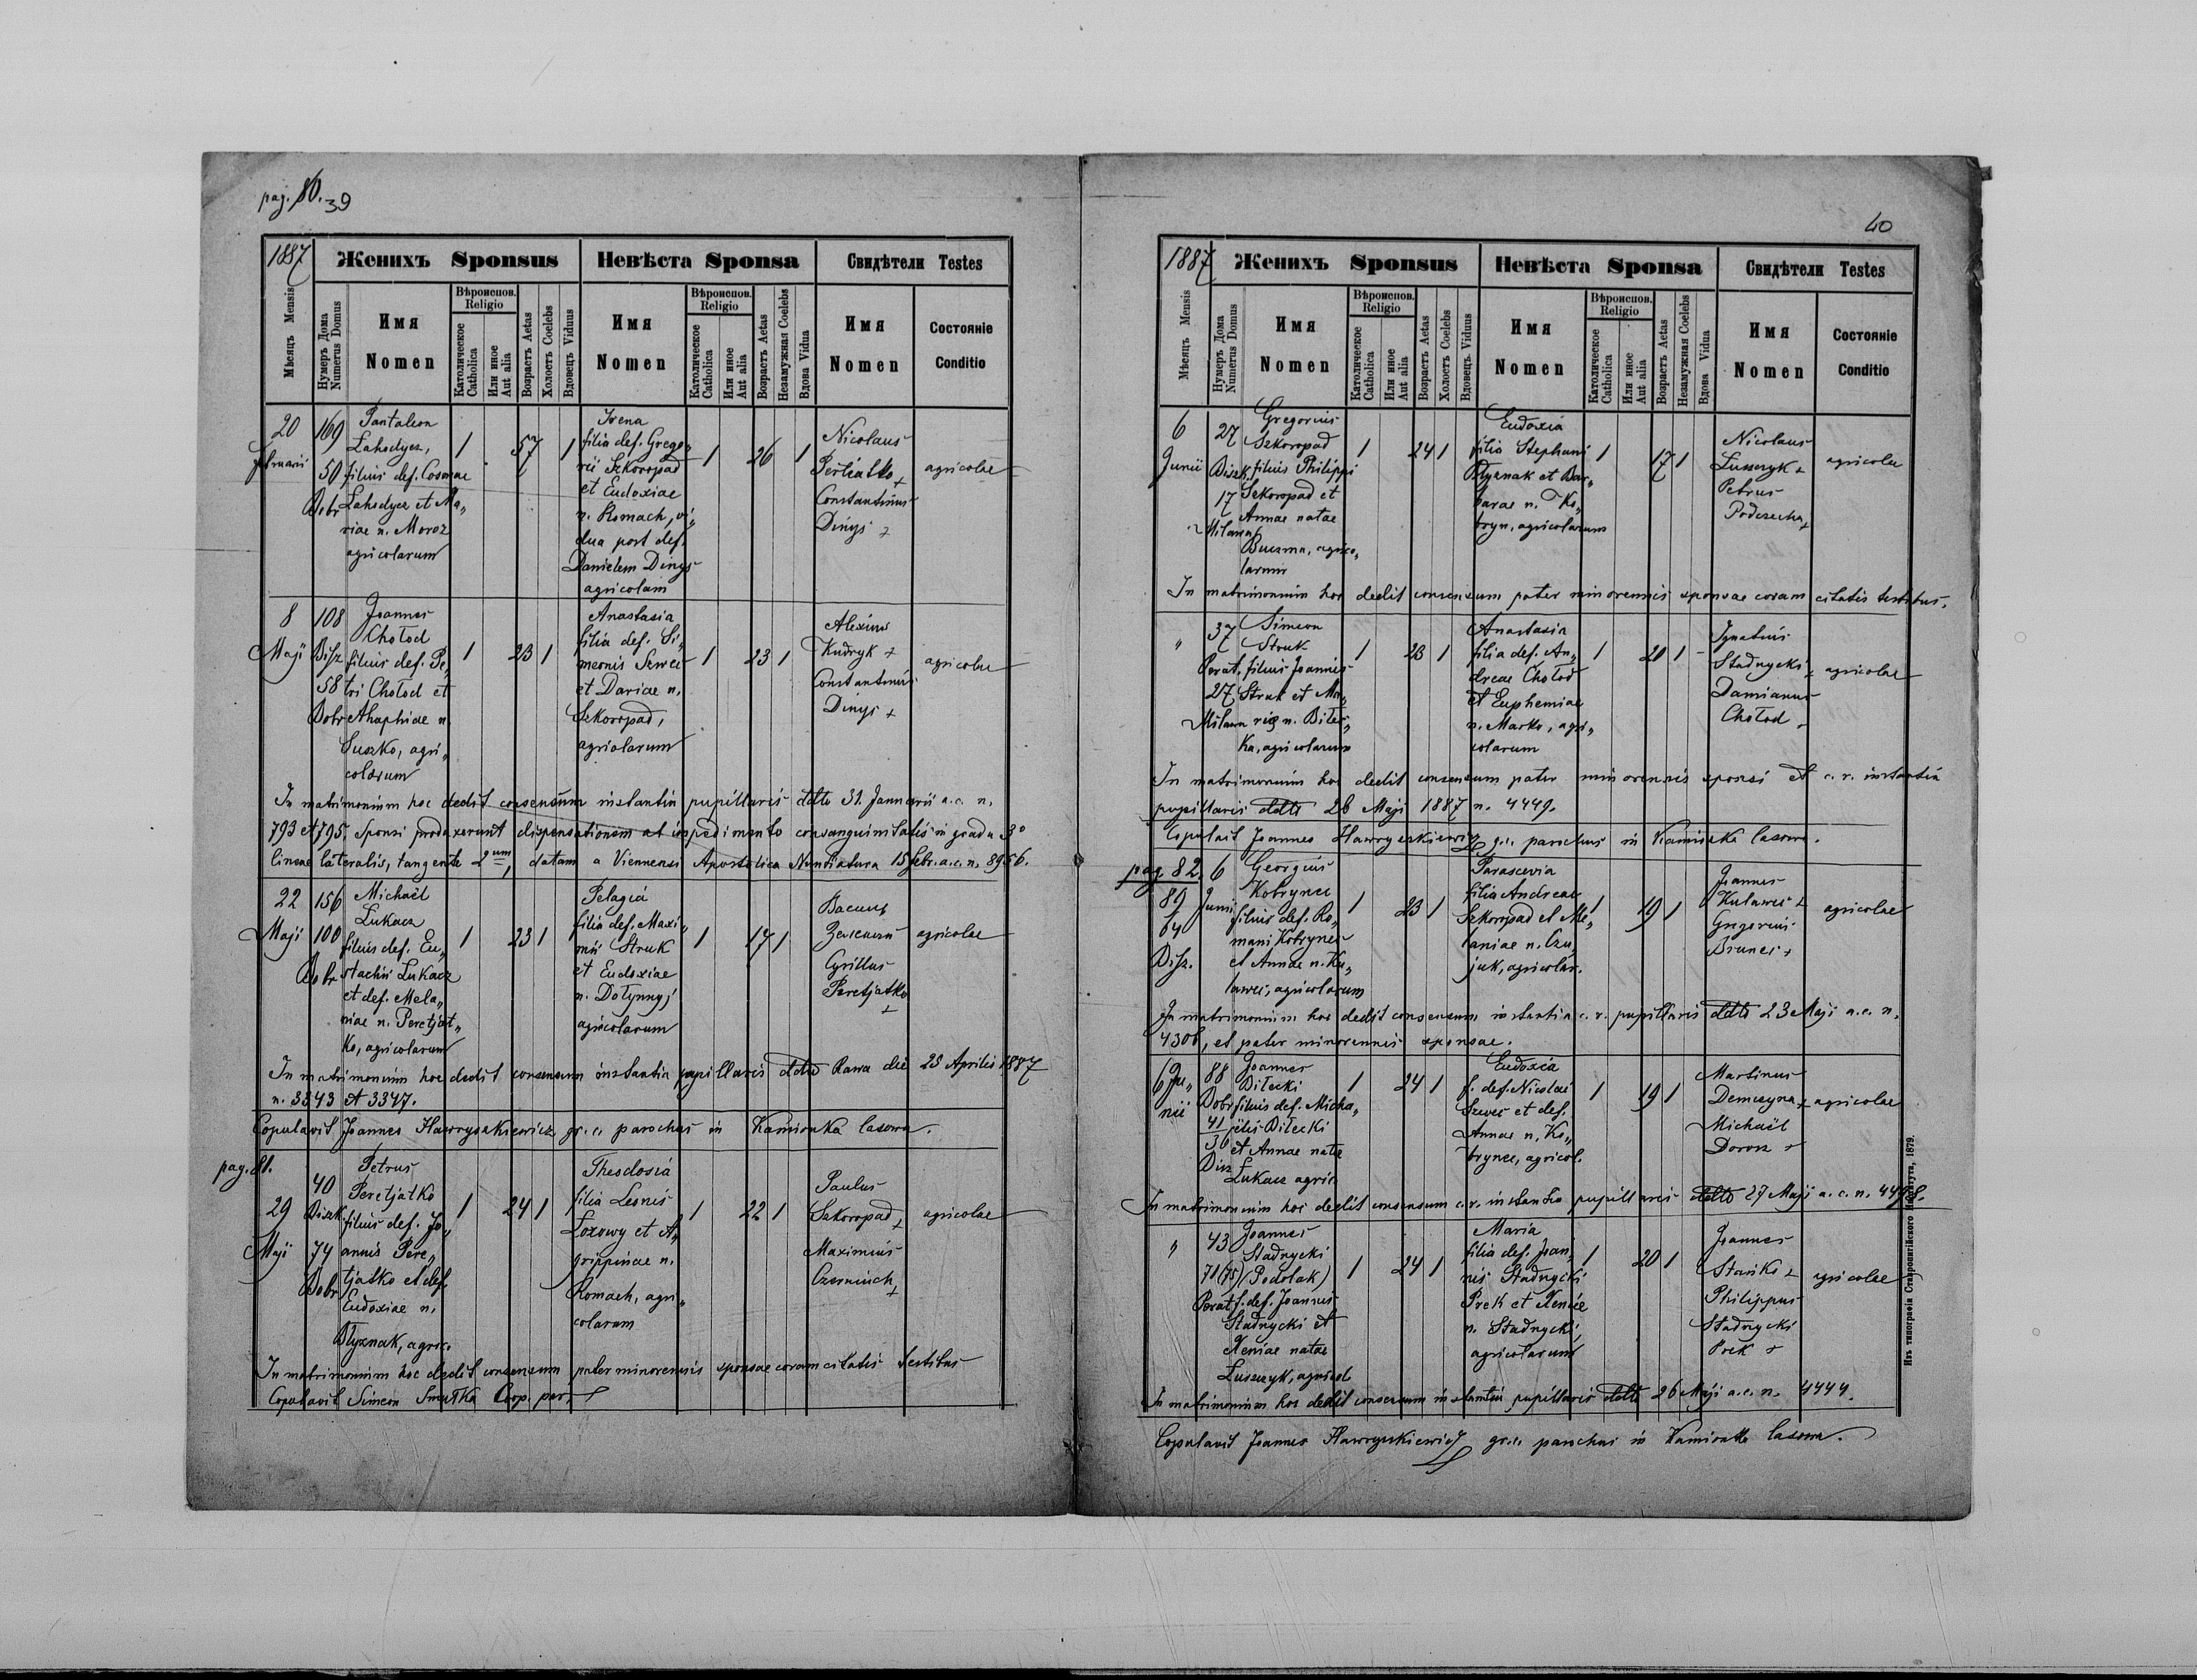 pag. 80. 39
1887
Женихъ Sponsus
Невѣста Sponsa
Свидѣтели Testes
Мѣсяцъ Mensis
Нумеръ Дома
Numerus Domus
Имя
Nomen
Вѣроиспов.
Religio
Католическое
Catholica
Или иное
Aut alia
Возрасть Aetas
Холостъ Coelebs
Вдовецъ Viduus
Имя
Nomen
Вѣроиспов.
Religio
Католическое
Catholica
Или иное
Aut alia
Возрасть Aetas
Незамужная Coelebs
Вдова Vidua
Имя
Nomen
Состояніе
Conditio
20
Februarii
169
59
Dobr
Pantaleon
Lahodycz,
filius def. Cosmae
Lahodycz et Ma„
riae n. Moroz
agricolarum
1
57
1
Irena
filia def. Grego„
rii Szkoropad
et Eudoxiae
n. Romach, vi„
dua post def.
Danielem Dinys
agricolam
1
26
1
Nicolaus
Pertiatko +
Constantinus
Dinys +
agricolae
8
Maji
108
Disz
58
Dobr
Joannes
Chołod
filius def. Pe„
tri Chołod et
Ahaphiae n.
Suszko, agri„
colarum
1
23 1
Anastasia
filia def. Si„
meonis Szwec
et Dariae n.
Szkoropad,
agriolarum
1
23 1
Alexius
Kudryk +
Constantinus
Dinys +
agricolae
In matrimonium hoc dedit consensum instantia pupillaris ddto 31. Januarii a.c. n.
793 et 795. Sponsi produxerunt dispensationem ab impedimento consanguinitatis in gradu 3º
lineae lateralis, tangente 2um, datam a Viennensi Apostolica Nuntiatura 15 Febr. a.c. n. 8956.
22
Maji
156
100
Dobr
Michaël
Lukacz
filius def. Eu„
stachii Lukacz
et def. Mela„
niae n. Peretjat„
ko, agricolarum
1
23 1
Pelagia
filia def. Maxi„
mii Struk
et Eudoxiae
n. Dołynnyj
agricolarum
1
17 1
Cyrillus
Peretjatko
+
agricolae
In matrimonium hoc dedit consensum instantia pupillaris ddto Rawa die 25 Aprilis 1887
n. 3343 et 3347.
Copulavit Joannes Hawryszkiewicz gr. c. parochus in Kamionka lasowa.
pag. 81.
29
Maji
40
Diszk
74
Dobr
Petrus
Peretjatko
filius def. Jo„
annis Pere„
tjatko et def.
Eudoxiae n.
Błyznak, agric.
1
24 1
Theodosia
filia Leonis
Łozowy et A„
grippinae n.
Romach, agri„
colarum
1
22 1
Paulus
Szkoropad +
Maximus
Czerniuch +
agricolae
In matrimonium hoc dedit consensum pater minorennis sponsae coram citatis testibus
Copulavit Simeon Smutka Coop. par.
40
1887
Женихъ Sponsus
Невѣста Sponsa
Свидѣтели Testes
Мѣсяцъ Mensis
Нумеръ Дома
Numerus Domus
Имя
Nomen
Вѣроиспов.
Religio
Католическое
Catholica
Или иное
Aut alia
Возрасть Aetas
Холостъ Coelebs
Вдовецъ Viduus
Имя
Nomen
Вѣроиспов.
Religio
Католическое
Catholica
Или иное
Aut alia
Возрасть Aetas
Незамужная Coelebs
Вдова Vidua
Имя
Nomen
Состояніе
Conditio
6
Junii
27
Diszk.
17
Milana
Gregorius
Szkoropad
filius Philippi
Szkoropad et
Annae natae
Buczma, agrico„
larum
1
24 1
Eudoxia
filia Stephani
Błyznak et Bar„
barae n. Ko„
bryn, agricolarum
1
17 1
Nicolaus
Luszczyk +
Petrus
Podczecha +
agricolae
In matrimonium hoc dedit consensum pater minorennis sponsae coram citatis testibus.
"
37
Perat.
27
Milana
Simeon
Struk
filius Joannis
Struk et Ma„
riae n. Biłec„
ka, agricolarum
1
23 1
Anastasia
filia def. An„
dreae Chołod
et Euphemiae
n. Marko, agri„
colarum
1
20 1
Ignatius
Stadnycki +
Damianus
Chołod +
agricolae
In matrimonium hoc dedit consensum pater minorennis sponsi et c. r. instantia
pupillaris ddto 26 Maji 1887 n. 4449.
Copulavit Joannes Hawryszkiewicz gr. c. parochus in Kamionka lasowa.
pag. 82.
6
Junii
89
64
Disz.
Georgius
Kobrynec
filius def. Ro„
mani Kobrynec
et Annae n. Ku„
lawec, agricolarum
1
23 1
Parascevia
filia Andreae
Szkoropad et Me„
laniae n. Czu„
juk, agricolar.
1
19 1
Joannes
Kulawec +
Gregorius
Brunec +
agricolae
In matrimonium hoc dedit consensum instantia c. r. pupillaris ddto 23 Maji a.c. n.
4306, et pater minorennis sponsae.
6 Ju„
nii
88
Dobr
41
36
Disz
Joannes
Biłecki
filius def. Micha„
jelis Biłecki
et Annae natae
Lukacz agric.
1
24 1
Eudoxia
f. def. Nicolai
Szwec et def.
Annae n. Ko„
brynec, agricol.
1
19 1
Martinus
Demczyna +
Michaël
Dorosz +
agricolae
In matrimonium hoc dedit consensum c. r. instantia pupillaris ddto 27 Maji a. c. n. 4498.
"
43
71 (75)
Perat
Joannes
Stadnycki
(Podolak)
f. def. Joannis
Stadnycki et
Xeniae natae
Luszczyk, agricol
1
24 1
Maria
filia def. Joan„
nis Stadnycki
Prek et Xeniae
n. Stadnycki,
agricolarum
1
20 1
Joannes
Stańko +
Philippus
Stadnycki
Prek +
agricolae
In matrimonium hoc dedit consensum instantia pupillaris ddto 26 Maji a. c. n. 4444.
Copulavit Joannes Hawryszkiewicz gr. c. parochus in Kamionka lasowa.
Изъ типографіи Ставропигійского Института, 1879.